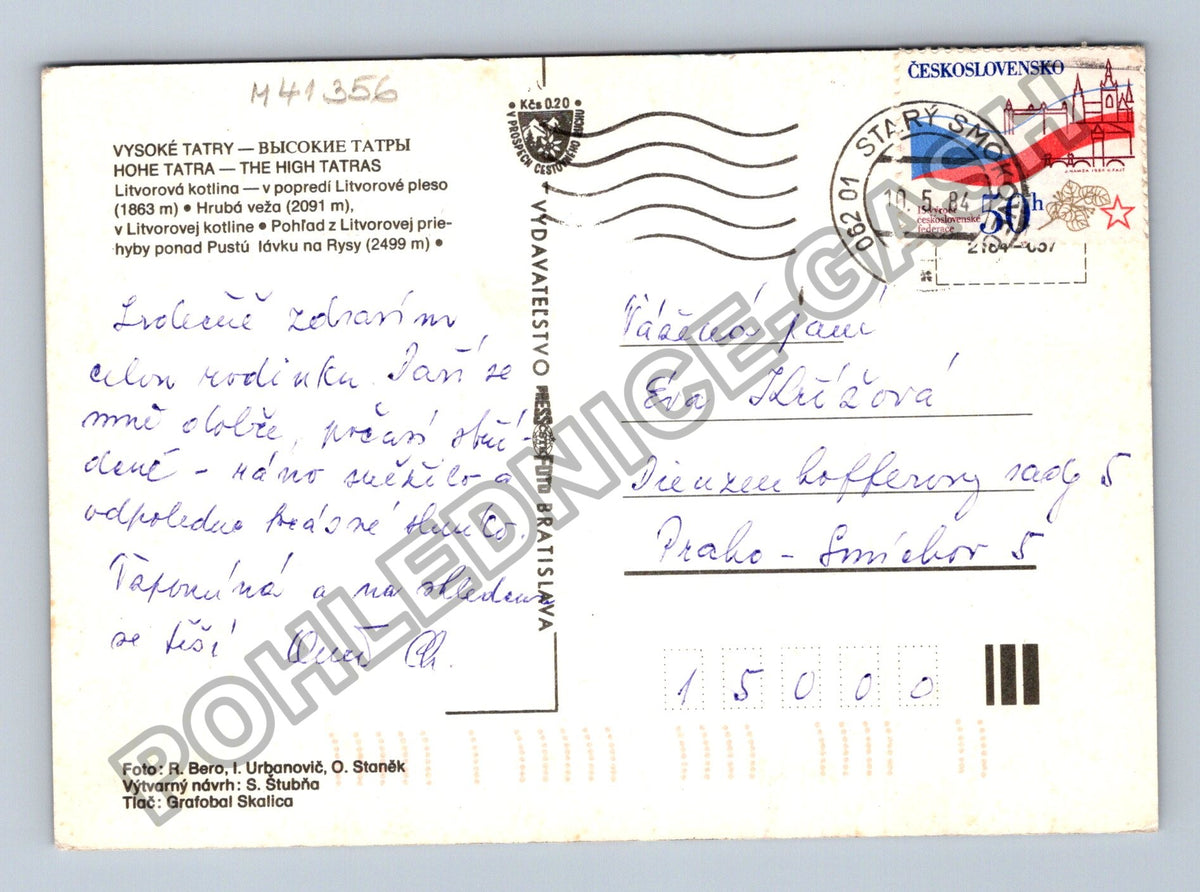 M41356
VYSOKÉ TATRY — ВЫСОКИЕ ТАТРЫ
HOHE TATRA — THE HIGH TATRAS
Litvorová kotlina — v popredí Litvorové pleso
(1863 m) • Hrubá veža (2091 m),
v Litvorovej kotline • Pohľad z Litvorovej prie-
hyby ponad Pustú lávku na Rysy (2499 m) •
Srdečně zdravím
celou rodinku. Daří se
mně dobře, počasí stu-
dené - ráno sněžilo a
odpoledne krásné slunko.
Vzpomíná a na shledanou
se těší
Foto: R. Bero, I. Urbanovič, O. Staněk
Výtvarný návrh: S. Štubňa
Tlač: Grafobal Skalica
• Kčs 0.20 •
V PROSPECH CESTOVNÉHO RUCHU
VYDAVATEĽSTVO PRESSFOTO BRATISLAVA
ČESKOSLOVENSKO
15. výročí
československé
federace
50h
062 01 STARÝ SMOKOVEC
10.5.84
Vážená paní
Eva Křížová
Dienzenhofferovy sady 5
Praha - Smíchov 5
15000
POHLEDNICE-GASH